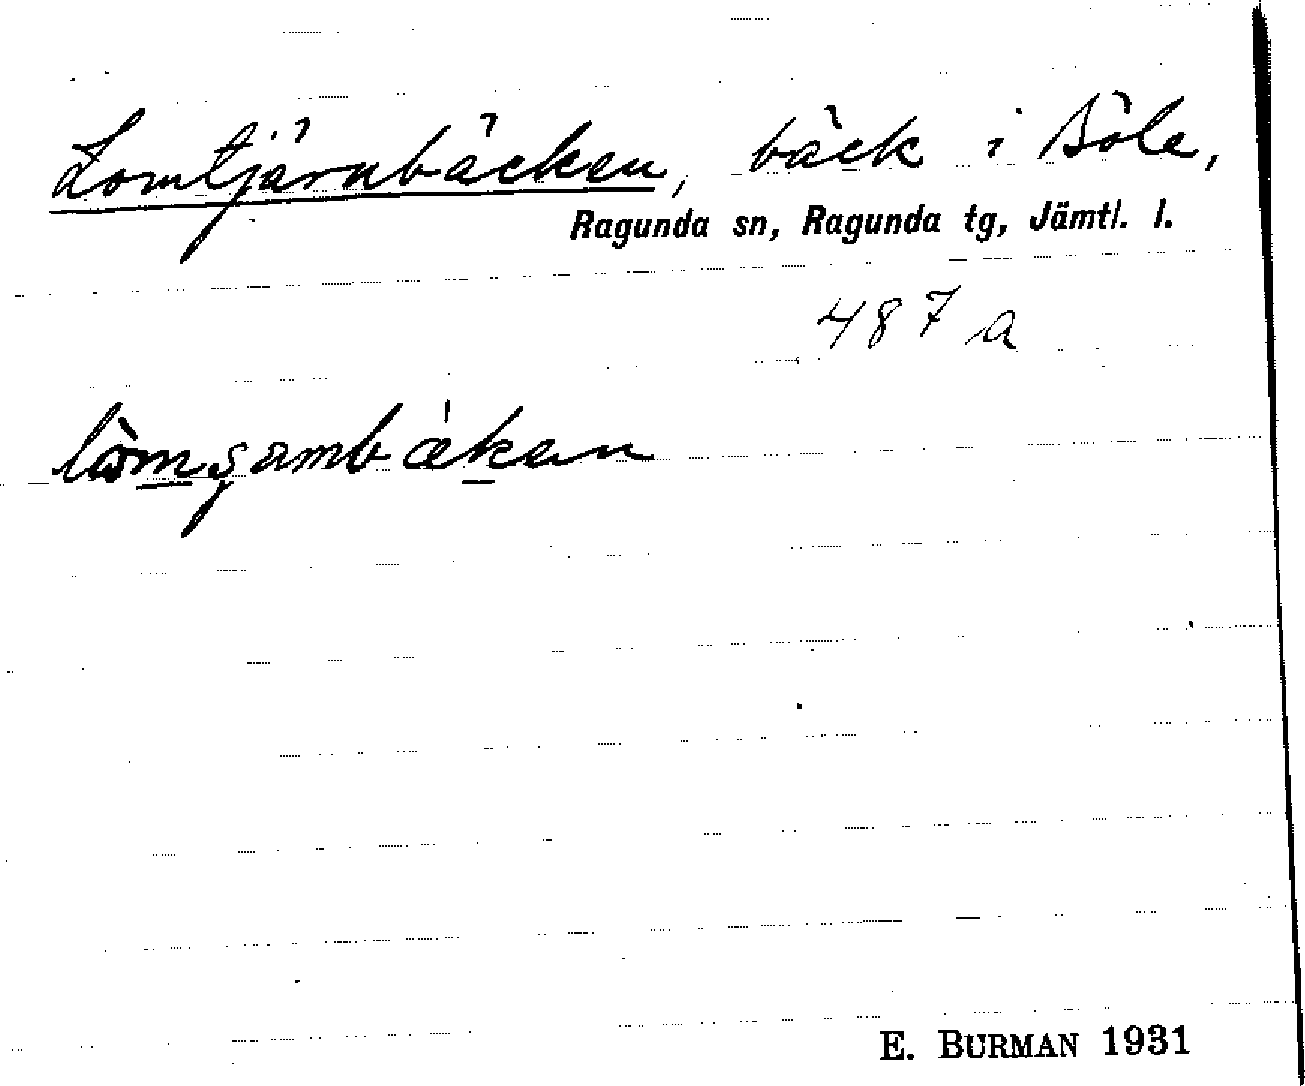 Lomtjärnbäcken, bäck i Böle,
Ragunda sn, Ragunda tg, Jämtl. l.
487 a
E. BURMAN 1931